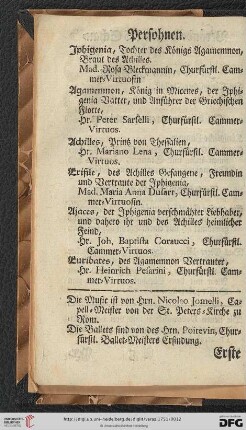 Persohnen.
Iphigenia, Tochter des Königs Agamemnon,
Braut des Achilles.
Mad. Rosa Bleckmannin, Churfürstl. Cam-
mer-Virtuosin
Agamemnon, König in Micenes, der Iphi-
genia Vatter, und Anführer der Griechischen
Flotte,
Hr. Peter Sarselli, Churfürstl. Cammer-
Virtuos.
Achilles, Printz von Thessalien,
Hr. Mariano Lena, Churfürstl. Cammer-
Virtuos.
Erifile, des Achilles Gefangene, Freundin
und Vertraute der Iphigenia,
Mad. Maria Anna Dufart, Churfürstl. Cam-
mer-Virtuosin.
Ajaces, der Iphigenia verschmähter Liebhaber,
und dahero ihr und des Achilles heimlicher
Feind,
Hr. Joh. Baptista Coraucci, Churfürstl.
Cammer-Virtuos.
Euridates, des Agamemnon Vertrauter,
Hr. Heinrich Pesarini, Churfürstl. Cam-
mer-Virtuos.
Die Musik ist von Hrn. Nicoloo Jomelli, Ca-
pell-Meister von der St. Peters-Kirche zu
Rom.
Die Ballets sind von des Hrn. Poitevin, Chur-
fürstl. Ballet-Meisters Erfindung.
Erste
DFG